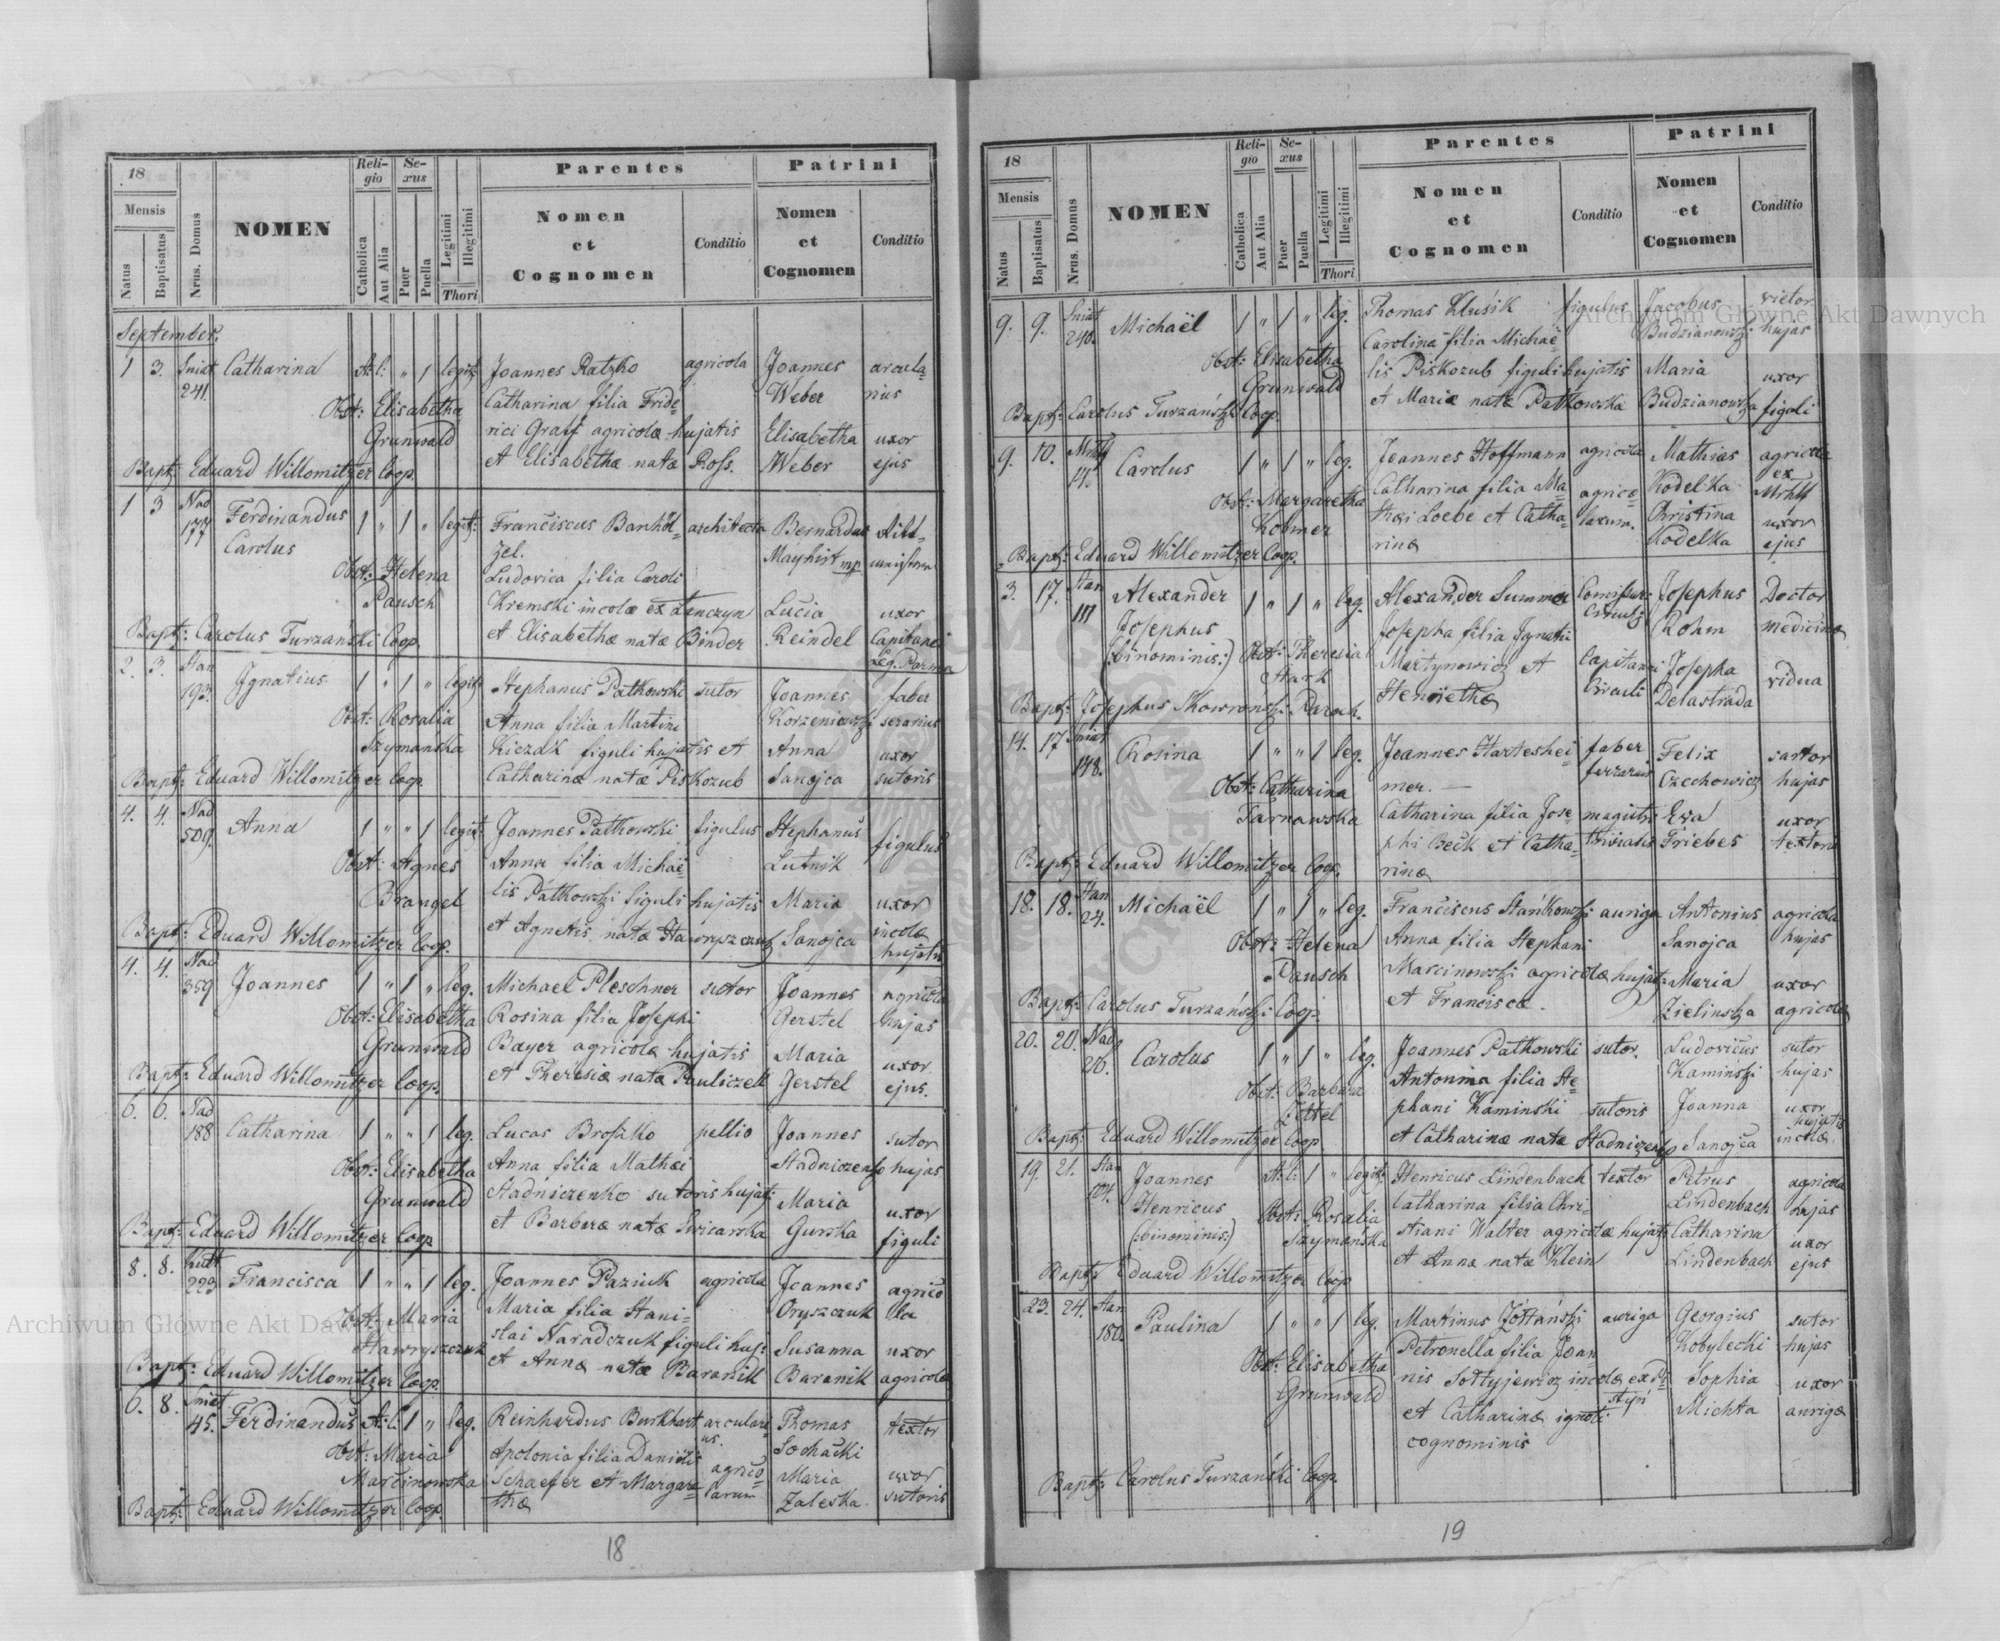 18
Mensis
Natus
Baptisatus
Nrus. Domus
NOMEN
Religio
Catholica
Aut Alia
Sexus
Puer
Puella
Legitimi
Illegitimi
Thori
Parentes
Nomen
et
Cognomen
Conditio
Patrini
Nomen
et
Cognomen
Conditio
September.
1 3. Sniat 241. Catharina A: C: " 1 legit:
Obst: Elisabetha
Grunwald
Joannes Ratzko agricola
Catharina filia Fride-
rici Graff agricolæ hujatis
et Elisabethæ natæ Ross.
Joannes arcula-
Weber rius
Elisabetha uxor
Weber ejus
Bapt: Eduard Willomitzer Coop.
1 3 Nad 177 Ferdinandus 1 " 1 " legit:
Carolus
Obst: Helena
Pausch
Franciscus Banhöl- architecta
zel.
Ludovica filia Caroli
Kremski incolæ ex Lanczyn
et Elisabethæ natæ Binder
Bernardus
Mayhirt mp
Lucia uxor
Reindel Capitanei
Leg. Parma
Bapt: Carolus Turzański Coop.
2. 3. Stan 193. Ignatius 1 " 1 " legit:
Obst: Rosalia
Szymańska
Stephanus Patkowski sutor
Anna filia Martini
Kiczak figuli hujatis et
Catharinæ natæ Piskozub
Joannes faber
Korzeniowski serarius
Anna uxor
Sanojca sutoris
Bapt: Eduard Willomitzer Coop.
4. 4. Nad 509. Anna 1 " " 1 legit:
Obst: Agnes
Brangel
Joannes Patkowski figulus
Anna filia Michaë-
lis Patkowski figuli hujatis
et Agnetis natæ Hawryszczuk
Stephanus figulus
Lutnik
Maria uxor
Sanojca incolæ
hujatis
Bapt: Eduard Willomitzer Coop.
4. 4. Nad 359 Joannes 1 " 1 " leg.
Obst: Elisabetha
Grunwald
Michael Pleschner sutor
Rosina filia Josephi
Bayer agricolæ hujatis
et Theresiæ natæ Pauliczek
Joannes agricola
Gerstel hujas
Maria uxor
Gerstel ejus.
Bapt: Eduard Willomitzer Coop.
6. 6. Nad 188 Catharina 1 " " 1 leg.
Obst: Elisabetha
Grunwald
Lucas Broszko pellio
Anna filia Mathæi
Stadniczenko sutoris hujat:
et Barberæ natæ Swicarska
Joannes sutor
Stadniczenko hujas
Maria uxor
Gurska figuli
Bapt: Eduard Willomitzer Coop.
8. 8. Kutt 223 Francisca 1 " " 1 leg.
Obst: Maria
Hawryszczuk
Joannes Paziuk agricola
Maria filia Stani-
slai Naradczuk figuli huj:
et Annæ natæ Baranik
Joannes agrico
Oryszczuk la
Susanna uxor
Baranik agricolæ
Bapt: Eduard Willomitzer Coop.
6. 8. Sniat 45. Ferdinandus A: C: 1 " leg.
Obst: Maria
Marcinowska
Reinhardus Burkhart arculari
us.
Apolonia filia Danielis
Schaefer et Margare- agrico-
thæ larum
Thomas textor
Sochacki
Maria uxor
Zaleska sutoris
Bapt: Eduard Willomitzer Coop.
18
18
Mensis
Natus
Baptisatus
Nrus. Domus
NOMEN
Religio
Catholica
Aut Alia
Sexus
Puer
Puella
Legitimi
Illegitimi
Thori
Parentes
Nomen
et
Cognomen
Conditio
Patrini
Nomen
et
Cognomen
Conditio
9. 9. Sniat 240. Michaël 1 " 1 " leg.
Obst: Elisabetha
Grunwald
Thomas Klusik figulus
Carolina filia Michaë-
lis Piskozub figuli hujatis
et Mariæ natæ Patkowska
Jacobus vietor
Budzianowski hujas
Maria uxor
Budzianowska figuli
Bapt: Carolus Turzański Coop.
9. 10. Mrhlf 14. Carolus 1 " 1 " leg.
Obst: Margaretha
Kolmer
Joannes Hoffmann agricola
Catharina filia Ma- agrico-
thæi Loebe et Catha- larum.
rinæ
Mathias agricola
Kodelka ex
Mrhlf
Christina uxor
Kodelka ejus
Bapt: Eduard Willomitzer Coop.
3. 17. Stan 111 Alexander 1 " 1 " leg.
Josephus
(:binominis:) Obst: Theresia
Stark
Alexander Summer
Josepha filia Ignatii
Martynowicz et Capitanei
Henriethæ Circuli
Josephus Doctor
Rohm medicinæ
Josepha vidua
Delastrada
Bapt: Josephus Skowroński Paroch.
14. 17 Sniat 148. Rosina 1 " " 1 leg.
Obst: Catharina
Tarnawska
Joannes Harteshei- faber
mer. ferrarius
Catharina filia Jose- magistri
phi Beck et Catha- trivialis
rinæ
Felix sartor
Czechowicz hujas
Ewa uxor
Friebes textoris
Bapt: Eduard Willomitzer Coop.
18. 18. Stan 24. Michaël 1 " 1 " leg.
Obst: Helena
Pausch
Franciscus Stańkowski auriga
Anna filia Stephani
Marcinowski agricolæ hujat:
et Franciscæ.
Antonius agricola
Sanojca hujas
Maria uxor
Zielinska agricolæ
Bapt: Carolus Turzański Coop.
20. 20. Nad 26. Carolus 1 " 1 " leg.
Obst: Barbara
Zittel
Joannes Patkowski sutor.
Antonina filia Ste-
phani Kaminski sutoris
et Catharinæ natæ Stadniczenko
Ludovicus sutor
Kaminski hujas
Joanna uxor
hujatis
Sanojca incolæ
Bapt: Eduard Willomitzer Coop
19. 21. Stan 104. Joannes A: C: 1 " legit:
Henricus
(:binominis:)
Obst: Rosalia
Szymańska
Henricus Lindenbach textor
Catharina filia Chri-
stiani Walter agricolæ hujat:
et Annæ natæ Klein
Petrus agricola
Lindenbach hujas
Catharina uxor
Lindenbach ejus
Bapt: Eduard Willomitzer Coop
23. 24. Stan 180. Paulina 1 " " 1 leg.
Obst: Elisabetha
Grunwald
Martinus Żółtański auriga
Petronella filia Joan-
nis Sołtyjewicz incolæ ex
et Catharinæ ignoti
cognominis
Georgius sutor
Kobylecki hujas
Sophia uxor
Michta aurigæ
Bapt: Carolus Turzański Coop.
19
Archiwum Główne Akt Dawnych
Archiwum Główne Akt Dawnych